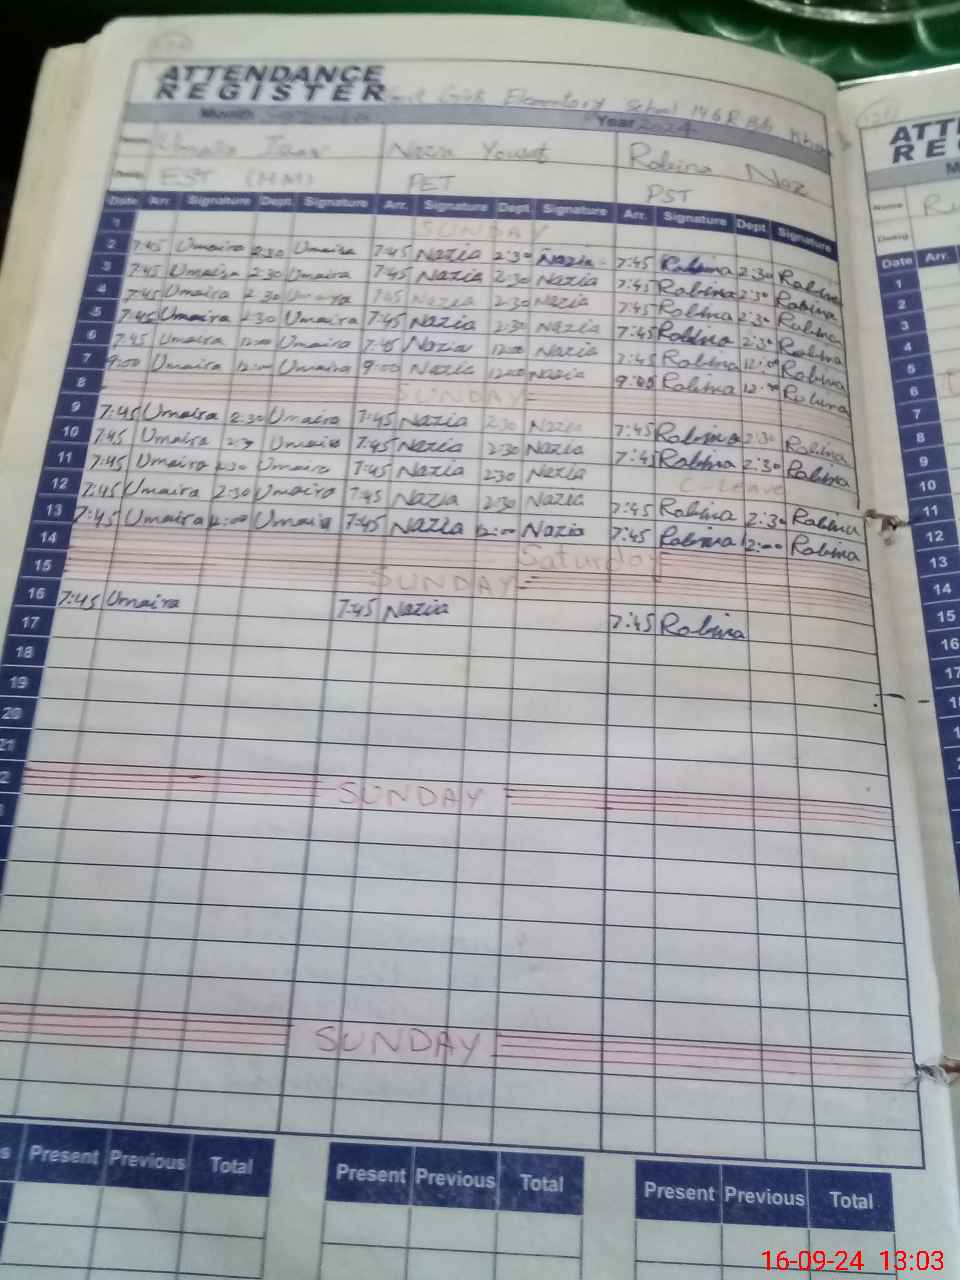 ATTENDANCE
REGISTER Govt Girls Elementary School 146 R.B
Month September Year 2024
Umaira Nazia Yousaf Robina Naz
EST (HM) PET PST
Date Arr. Signature Dept. Signature Arr. Signature Dept. Signature Arr. Signature Dept. Signature
1 SUNDAY
2 7:45 Umaira 2:30 Umaira 7:45 Nazia 2:30 Nazia 7:45 Robina 2:30 Robina
3 7:45 Umaira 2:30 Umaira 7:45 Nazia 2:30 Nazia 7:45 Robina 2:30 Robina
4 7:45 Umaira 2:30 Umaira 7:45 Nazia 2:30 Nazia 7:45 Robina 2:30 Robina
5 7:45 Umaira 2:30 Umaira 7:45 Nazia 2:30 Nazia 7:45 Robina 2:30 Robina
6 7:45 Umaira 12:00 Umaira 7:45 Nazia 12:00 Nazia 7:45 Robina 12:00 Robina
7 9:00 Umaira 12:00 Umaira 9:00 Nazia 12:00 Nazia 9:00 Robina 12:00 Robina
8 SUNDAY
9 7:45 Umaira 2:30 Umaira 7:45 Nazia 2:30 Nazia 7:45 Robina 2:30 Robina
10 7:45 Umaira 2:30 Umaira 7:45 Nazia 2:30 Nazia 7:45 Robina 2:30 Robina
11 7:45 Umaira 2:30 Umaira 7:45 Nazia 2:30 Nazia C-Leave
12 7:45 Umaira 2:30 Umaira 7:45 Nazia 2:30 Nazia 7:45 Robina 2:30 Robina
13 7:45 Umaira 12:00 Umaira 7:45 Nazia 12:00 Nazia 7:45 Robina 12:00 Robina
14 Saturday
15 SUNDAY
16 7:45 Umaira 7:45 Nazia 7:45 Robina
17
18
19
20
21
SUNDAY
SUNDAY
Present Previous Total Present Previous Total Present Previous Total
ATT
RE
Name
Desig
Date Arr.
1
2
3
4
5
6
7
8
9
10
11
12
13
14
15
16
17
16-09-24 13:03